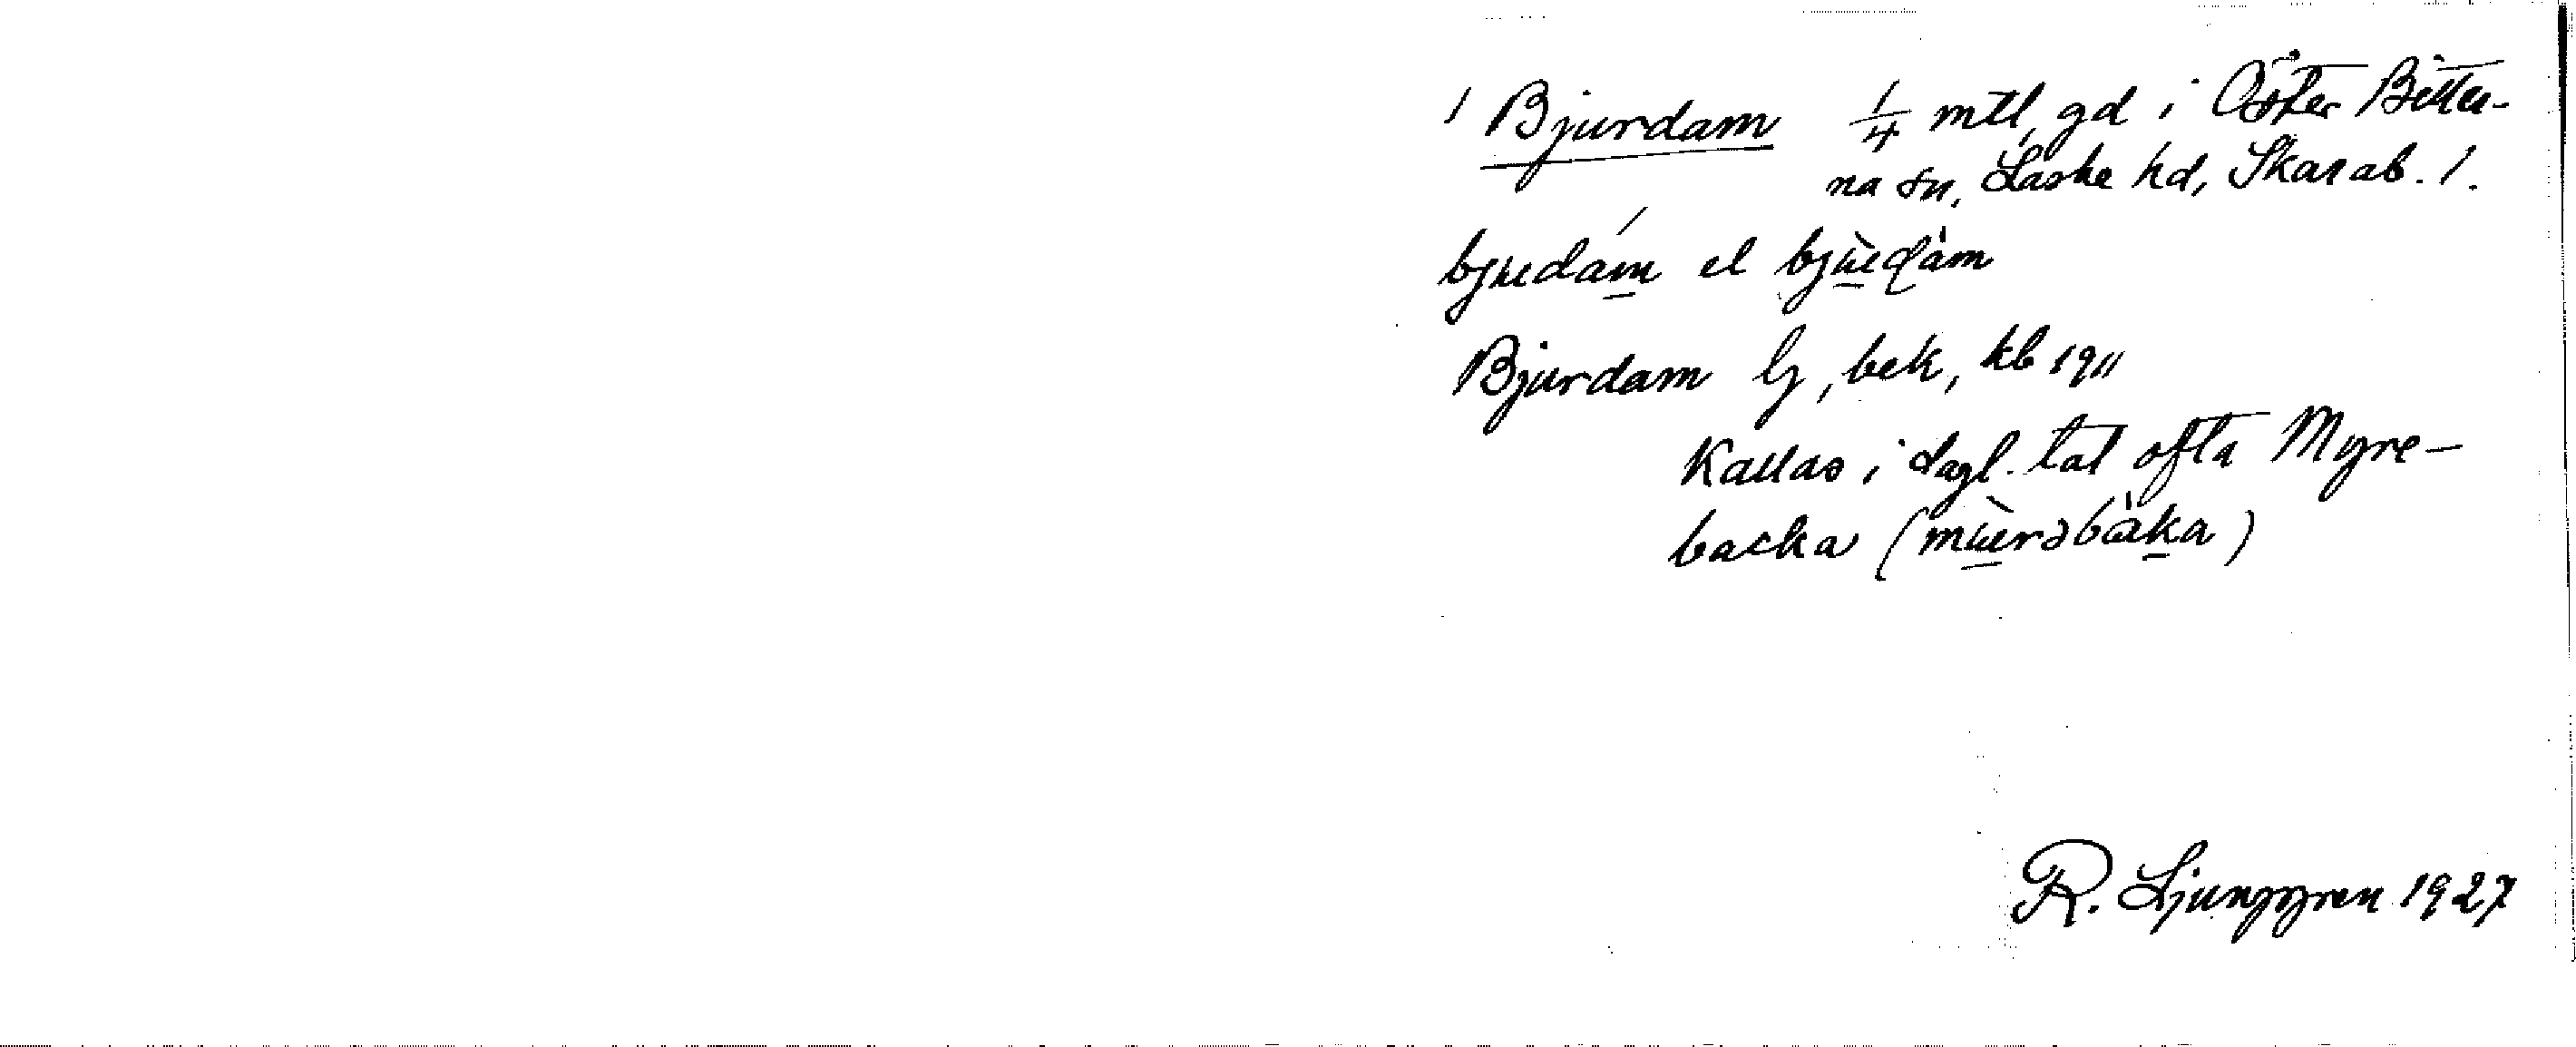 1 Bjurdam 1/4 mtl, gd i Öster Bitter-
na sn, Laske hd, Skarab. l.
bjudám el bjùeɖàm
Bjurdam bj, bek, kb 1911
Kallas i dagl. tal ofta Myre-
backa (mùerəbàka)
R. Ljunggren 1927